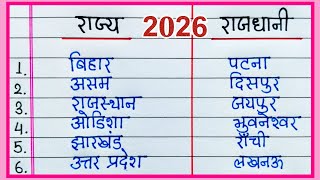 राज्य 2026 राजधानी
1. बिहार पटना
2. असम दिसपुर
3. राजस्थान जयपुर
4. ओडिशा भुवनेश्वर
5. झारखंड राँची
6. उत्तर प्रदेश लखनऊ